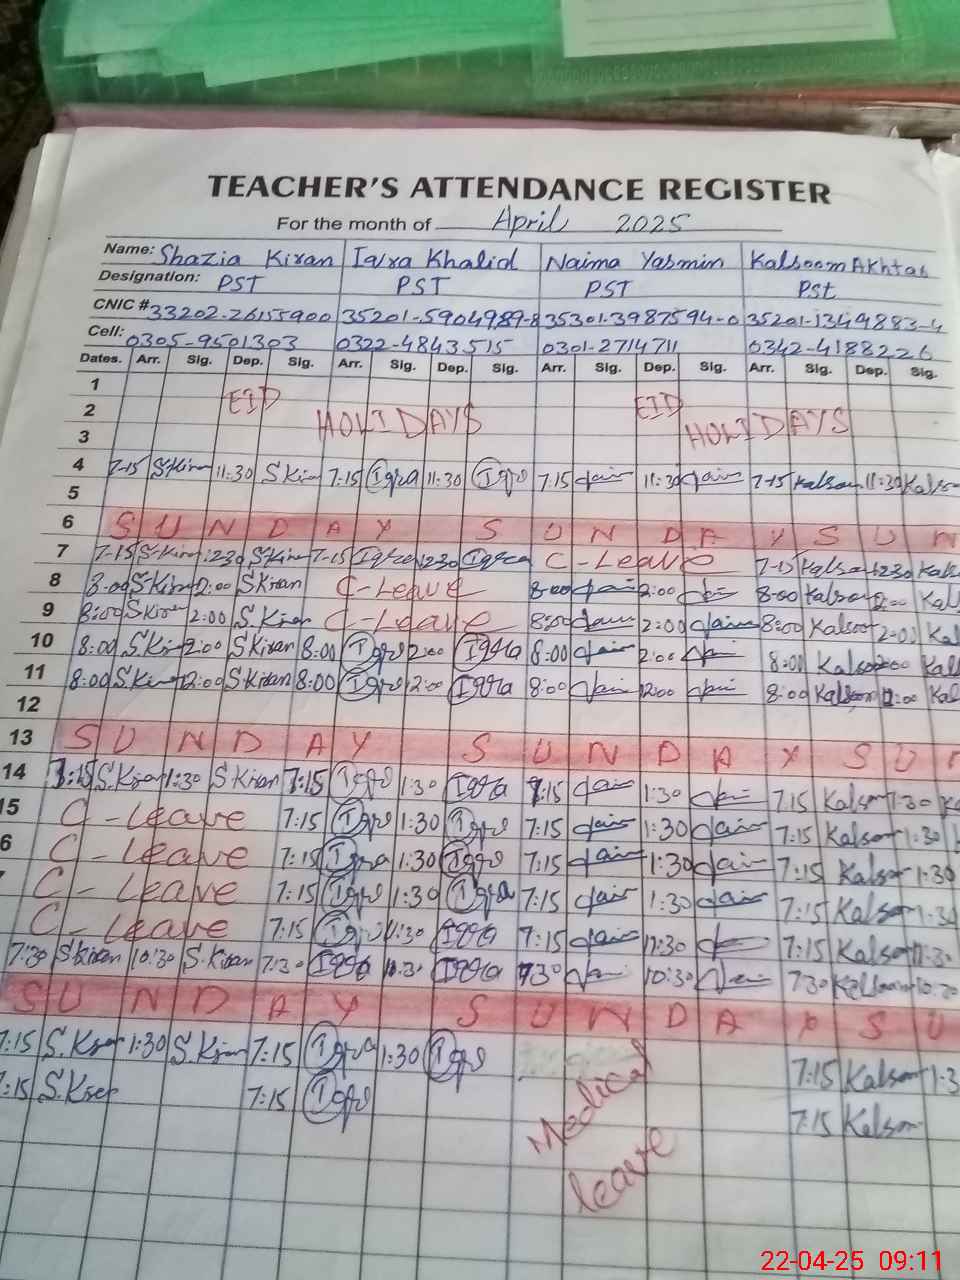 TEACHER'S ATTENDANCE REGISTER
For the month of April 2025
Name: Shazia Kiran Iqra Khalid Naima Yasmin Kalsoom Akhtar
Designation: PST PST PST Pst
CNIC # 33202-26155900 35201-5904989-8 35301-3987594-0 35201-1349883-4
Cell: 0305-9501303 0322-4843515 0301-2714711 0342-4188226
Dates. Arr. Sig. Dep. Sig. Arr. Sig. Dep. Sig. Arr. Sig. Dep. Sig. Arr. Sig. Dep. Sig.
1
2 EID HOLIDAYS EID HOLIDAYS
3
4 7-15 S.Kiran 11:30 S Kiran 7:15 Iqra 11:30 Iqra 7:15 11:30 7-15 Kalsoom 11:30 Kalsoo
5
6 S U N D A Y S U N D A Y S U N
7 7-15 S.Kiran 1230 S.Kiran 7-15 Iqra 1230 Iqra C-Leave 7-15 Kalsoo 1230 Kals
8 8:00 S.Kiran 2:00 S Kiran C-Leave 8:00 2:00 8:00 Kalsoo 2:00 Kal
9 8:00 S Kiran 2:00 S.Kiran C-Leave 8:00 2:00 8:00 Kalsoom 2:00 Kal
10 8:00 S.Kiran 2:00 S Kiran 8:00 Iqra 2:00 Iqra 8:00 2:00 8:00 Kalsoom 2:00 Kal
11 8:00 S.Kiran 12:00 S Kiran 8:00 Iqra 12:00 Iqra 8:00 12:00 8:00 Kalsoom 12:00 Kal
12
13 S U N D A Y S U N D A Y S U
14 7:15 S.Kiran 1:30 S Kiran 7:15 Iqra 1:30 Iqra 7:15 1:30 7:15 Kalsoom 1:30
15 C-Leave 7:15 Iqra 1:30 Iqra 7:15 1:30 7:15 Kalsoom 1:30
6 C-Leave 7:15 Iqra 1:30 Iqra 7:15 1:30 7:15 Kalsoom 1:30
C-Leave 7:15 Iqra 1:30 Iqra 7:15 1:30 7:15 Kalsoom 1:30
C-Leave 7:15 Iqra 11:30 Iqra 7:15 11:30 7:15 Kalsoom 11:30
7:30 S.Kiran 10:30 S.Kiran 7:30 Iqra 10:30 Iqra 7:30 10:30 7:30 Kalsoom 10:30
S U N D A Y S U N D A Y S U
7:15 S.Kiran 1:30 S.Kiran 7:15 Iqra 1:30 Iqra 7:15 Kalsoom 1:3
:15 S.Kiran 7:15 Iqra 7:15 Kalsoom
Medical
leave
22-04-25 09:11